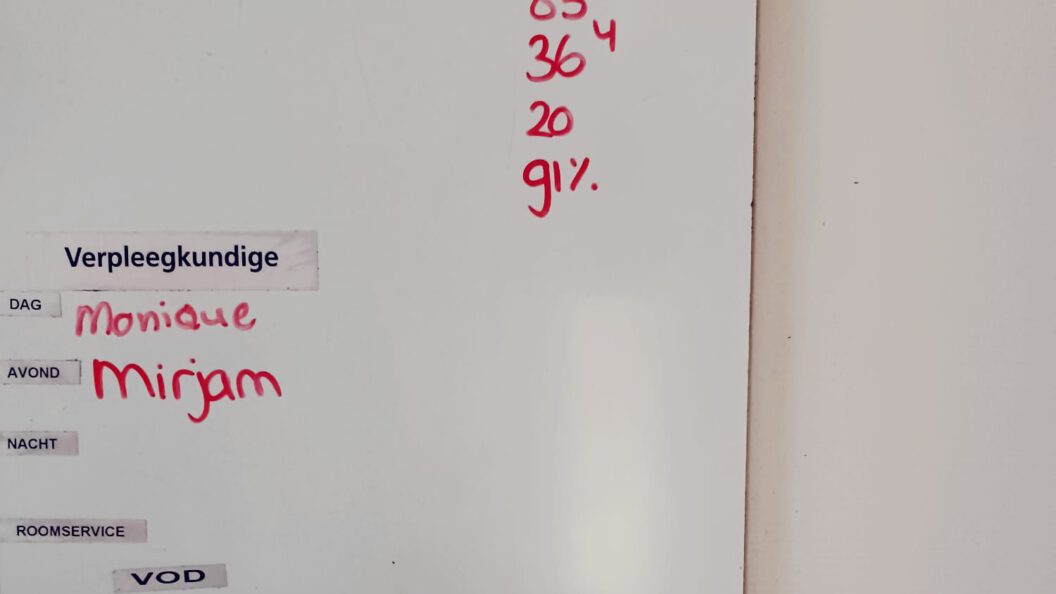 36⁴
20
91%
Verpleegkundige
DAG Monique
AVOND Mirjam
NACHT
ROOMSERVICE
VOD